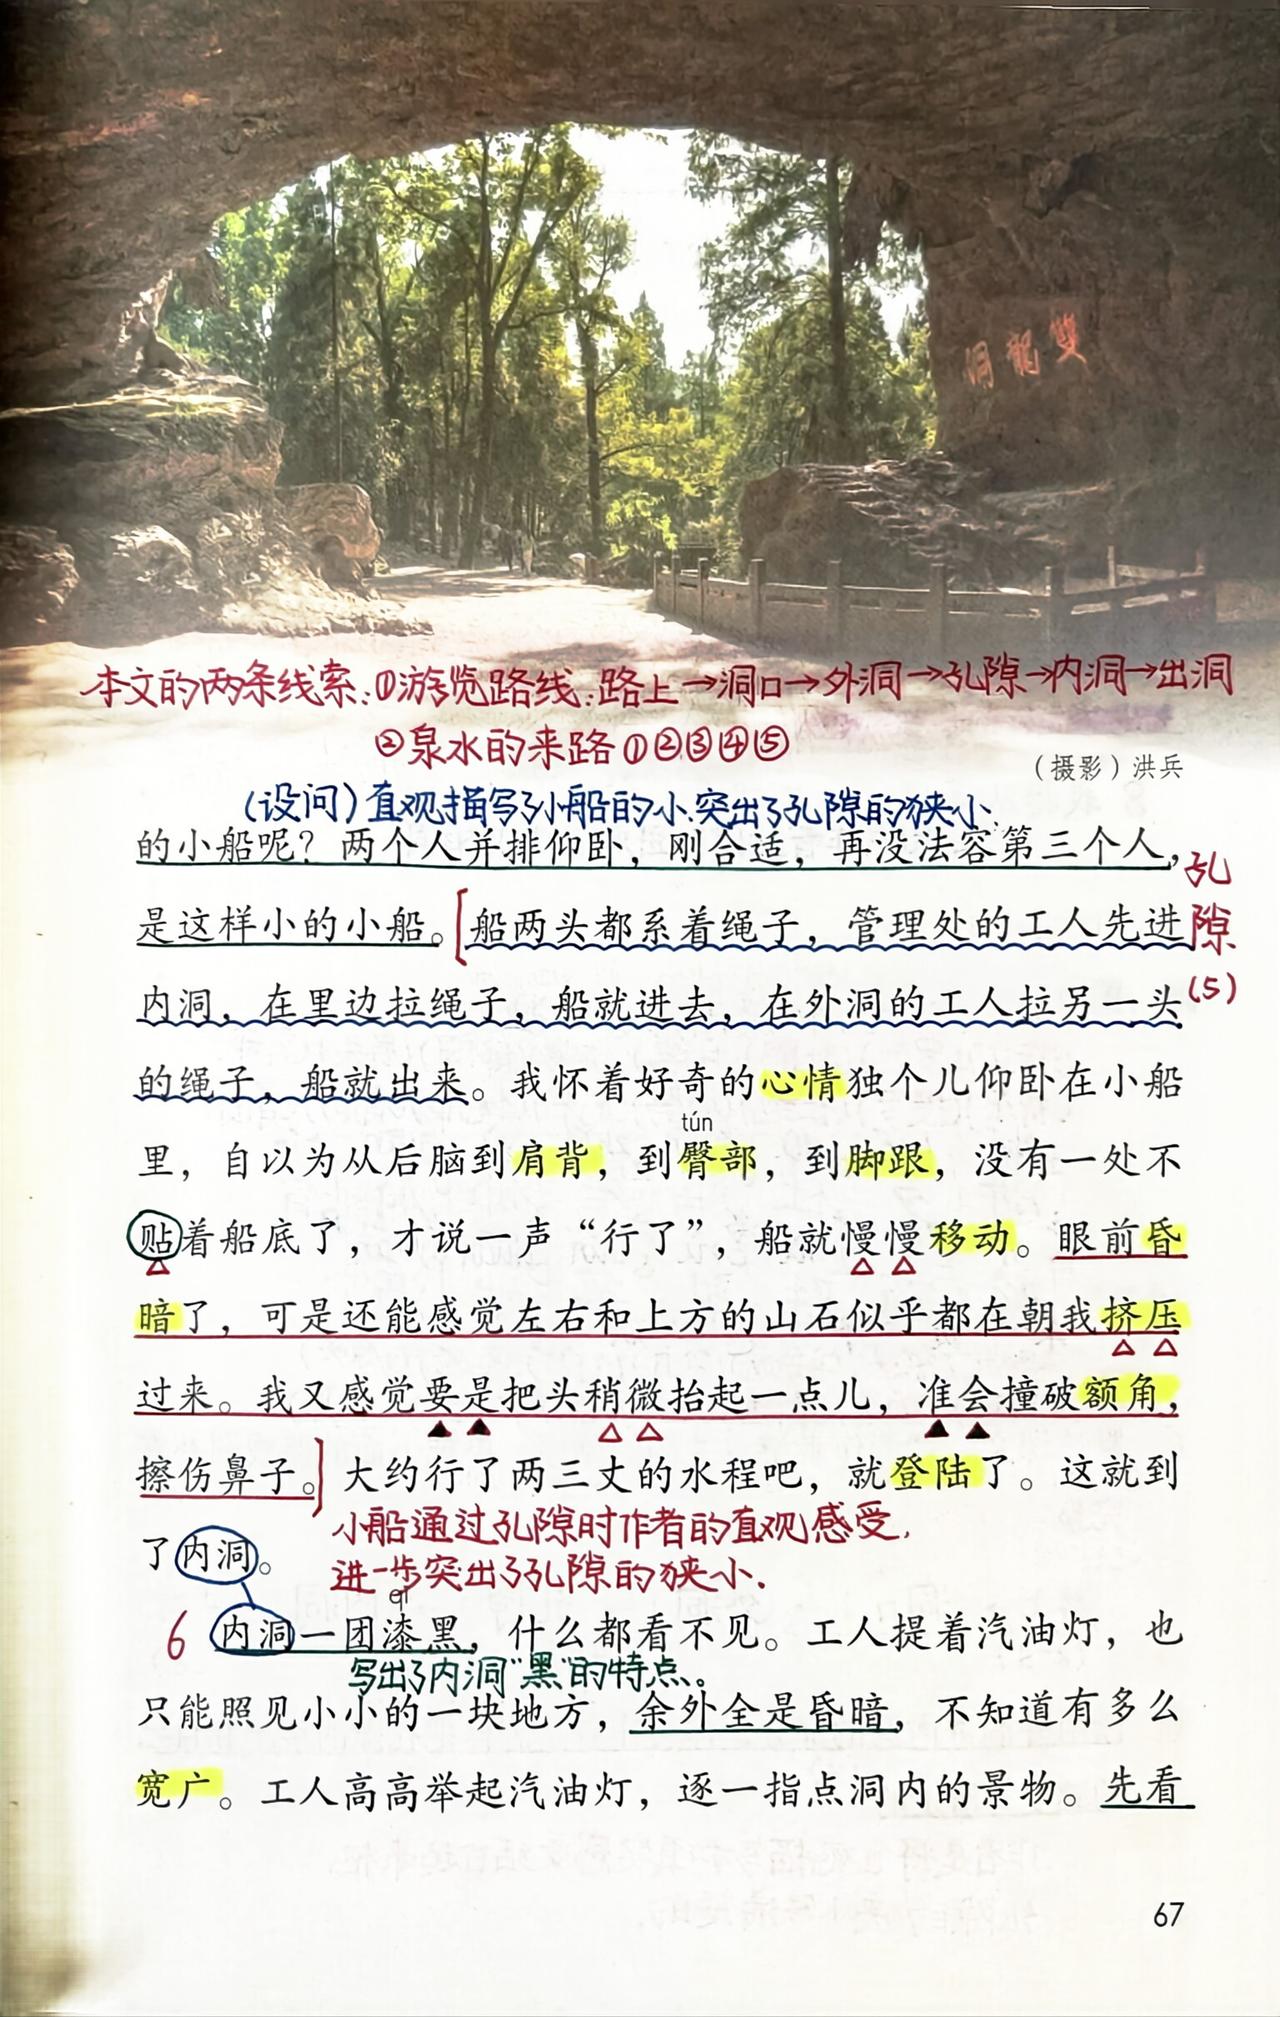 雙龍洞
本文的两条线索:①游览路线:路上→洞口→外洞→孔隙→内洞→出洞
②泉水的来路①②③④⑤
(摄影)洪兵
(设问)直观描写了小船的小.突出了孔隙的狭小.
的小船呢?两个人并排仰卧,刚合适,再没法容第三个人,
是这样小的小船。[船两头都系着绳子,管理处的工人先进
孔隙(5)
内洞,在里边拉绳子,船就进去,在外洞的工人拉另一头
的绳子,船就出来。我怀着好奇的心情独个儿仰卧在小船
tún
里,自以为从后脑到肩背,到臀部,到脚跟,没有一处不
贴着船底了,才说一声“行了”,船就慢慢移动。眼前昏
暗了,可是还能感觉左右和上方的山石似乎都在朝我挤压
过来。我又感觉要是把头稍微抬起一点儿,准会撞破额角,
擦伤鼻子。]大约行了两三丈的水程吧,就登陆了。这就到
小船通过孔隙时作者的直观感受,
了内洞。
进一步突出了孔隙的狭小.
qī
6 内洞一团漆黑,什么都看不见。工人提着汽油灯,也
写出了内洞“黑”的特点。
只能照见小小的一块地方,余外全是昏暗,不知道有多么
宽广。工人高高举起汽油灯,逐一指点洞内的景物。先看
67